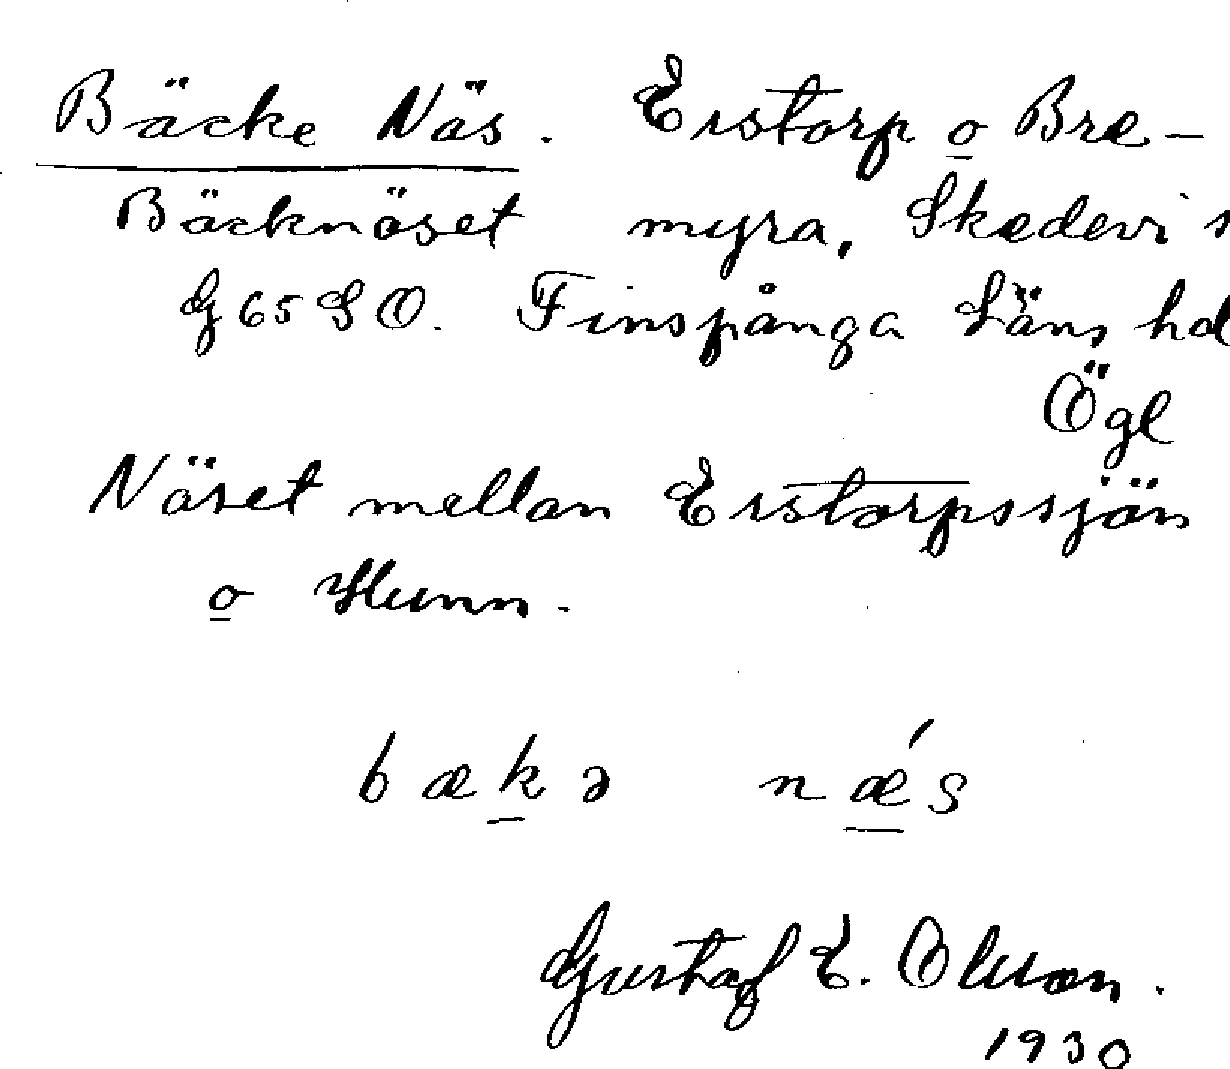 Bäcke Näs. Erstorp o Bre-
Bäcknäset myra, Skedevi s
G 65 SO. Finspånga Läns hd
Ögl
Näset mellan Erstorpssjön
o Hunn.
bækə nǽs
Gustaf E. Olsson.
1930